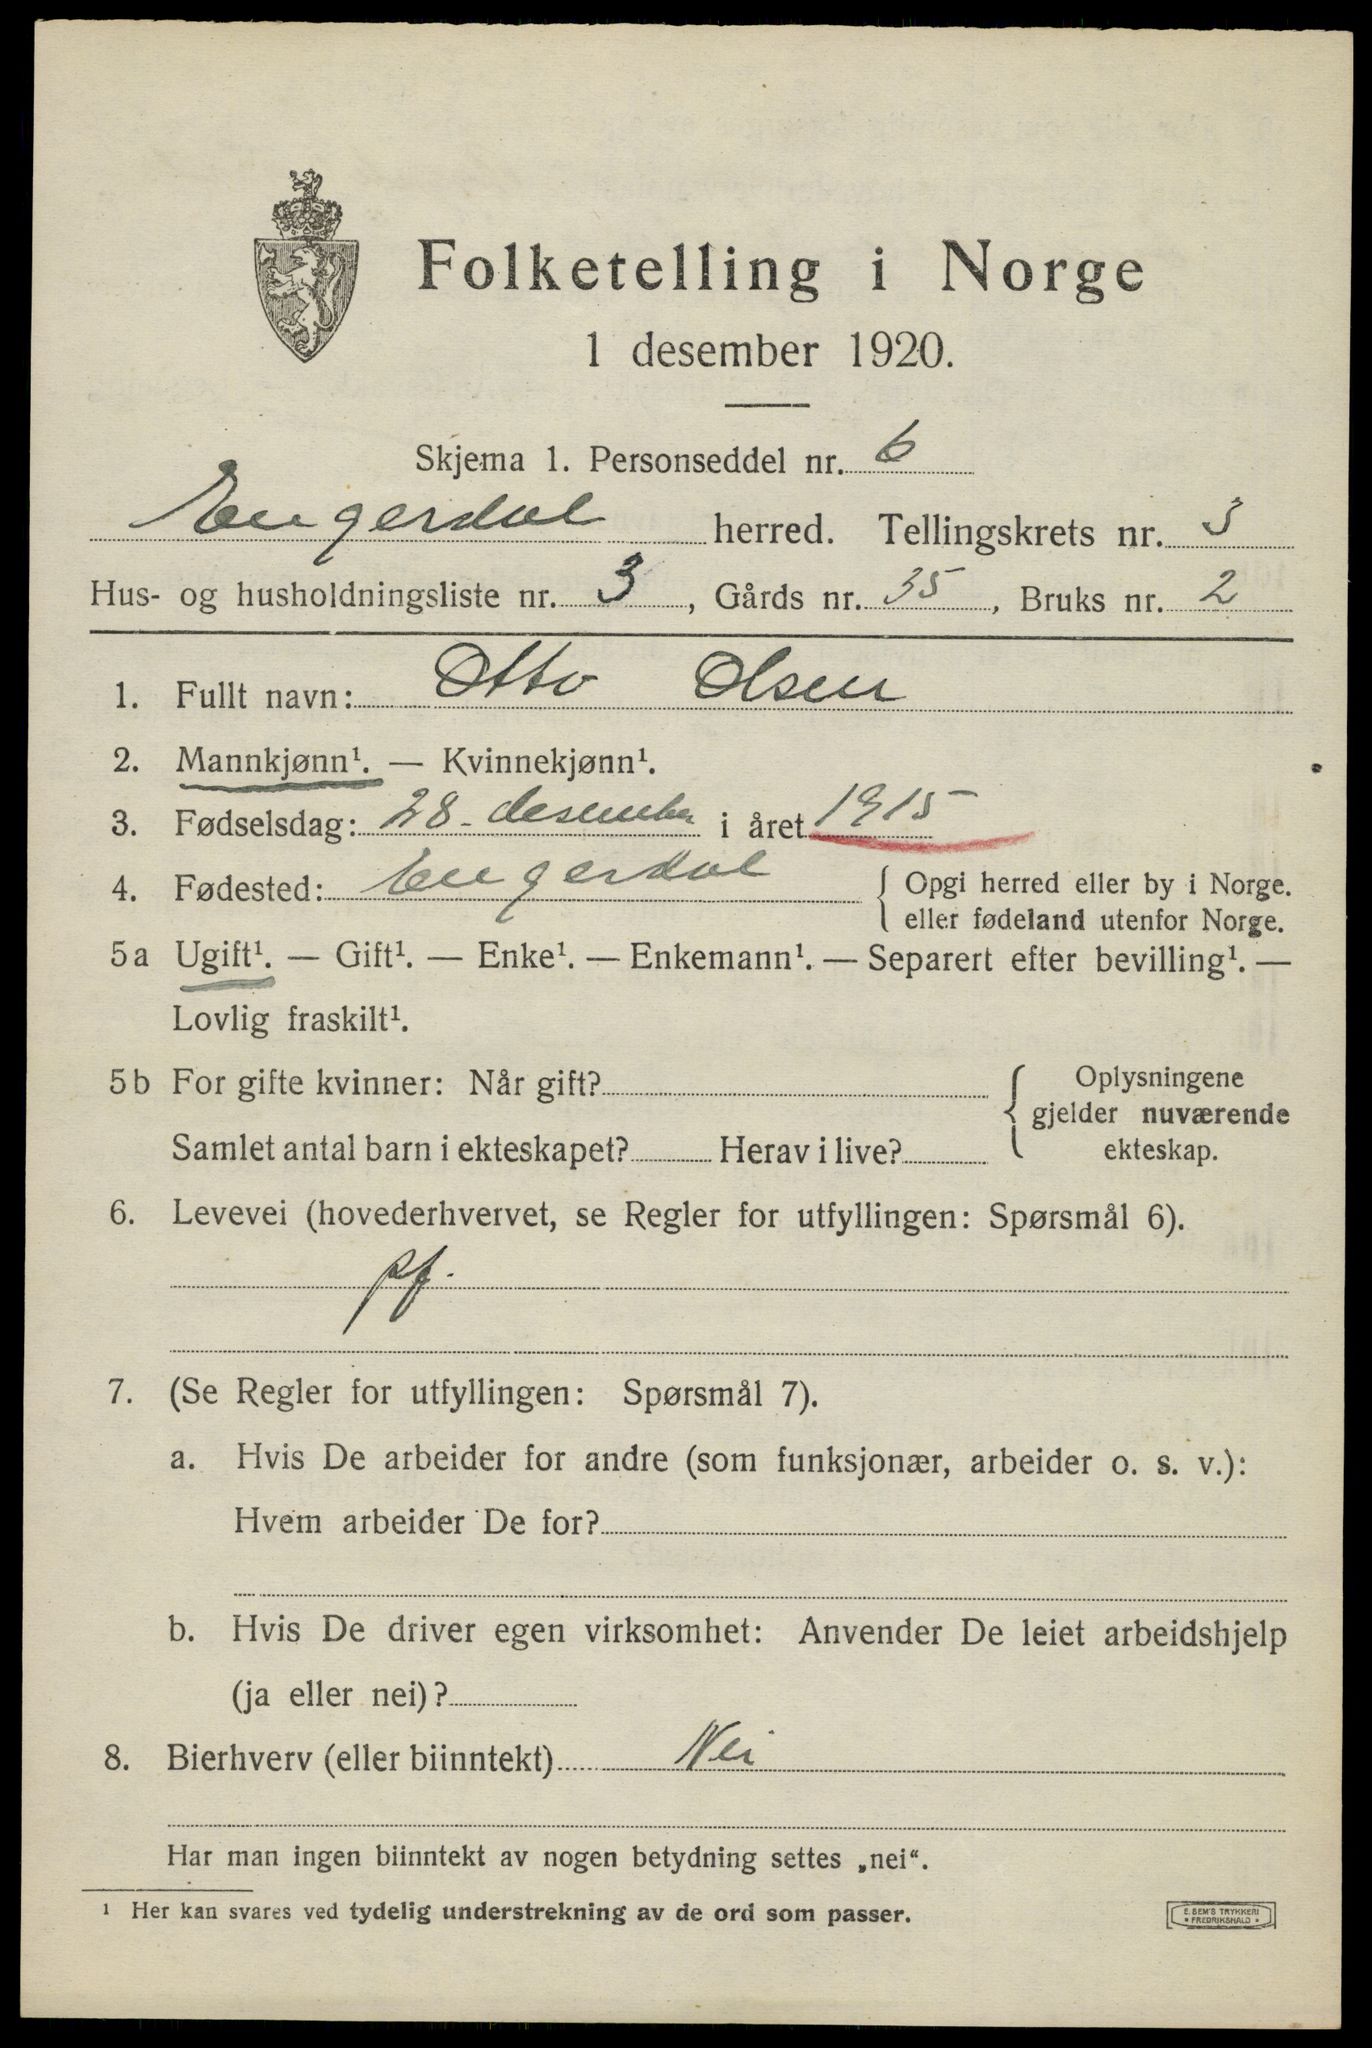 Folketelling i Norge
1 desember 1920.
Skjema 1. Personseddel nr. 6
Engerdal herred. Tellingskrets nr. 3
Hus- og husholdningsliste nr. 3, Gårds nr. 35, Bruks nr. 2
1. Fullt navn: Otto Olsen
2. Mannkjønn¹. — Kvinnekjønn¹.
3. Fødselsdag: 28. desember i året 1915
4. Fødested: Engerdal { Opgi herred eller by i Norge.
eller fødeland utenfor Norge.
5a Ugift¹. — Gift¹. — Enke¹. — Enkemann¹. — Separert efter bevilling¹. —
Lovlig fraskilt¹.
5b For gifte kvinner: Når gift? { Oplysningene
gjelder nuværende
Samlet antal barn i ekteskapet? Herav i live? ekteskap.
6. Levevei (hovederhvervet, se Regler for utfyllingen: Spørsmål 6).
pf.
7. (Se Regler for utfyllingen: Spørsmål 7).
a. Hvis De arbeider for andre (som funksjonær, arbeider o. s. v.):
Hvem arbeider De for?
b. Hvis De driver egen virksomhet: Anvender De leiet arbeidshjelp
(ja eller nei)?
8. Bierhverv (eller biinntekt) Nei
Har man ingen biinntekt av nogen betydning settes „nei“.
¹ Her kan svares ved tydelig understrekning av de ord som passer.
E. SEM'S TRYKKERI
* FREDRIKSHALD *